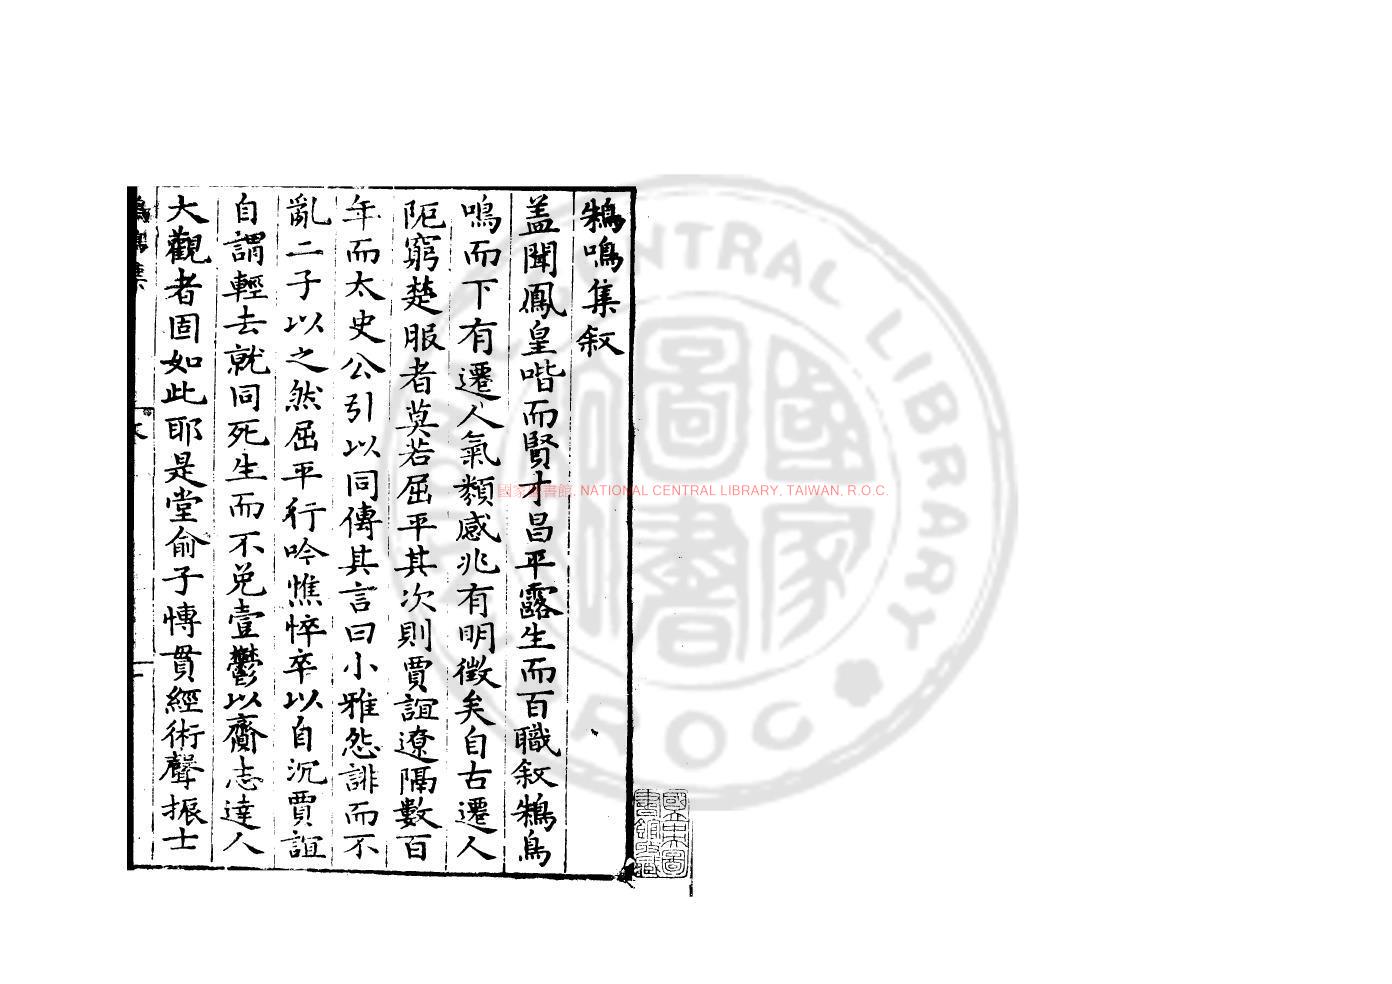 鵜鳴集敘
盖聞鳳皇喈而賢才昌平露生而百職敘鵜鳥
鳴而下有遷人氣類感兆有明徵矣自古遷人
阨窮楚服者莫若屈平其次則賈誼遼隔數百
年而太史公引以同傳其言曰小雅怨誹而不
亂二子以之然屈平行吟憔悴卒以自沉賈誼
自謂輕去就同死生而不免壹鬱以齎志達人
大觀者固如此耶是堂俞子愽貫經術聲振士
國家圖書館, NATIONAL CENTRAL LIBRARY, TAIWAN, R.O.C.